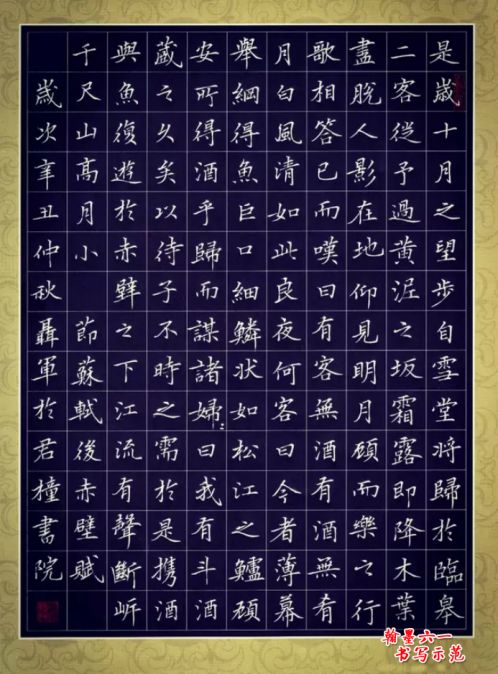 是歲十月之望步自雪堂將歸於臨皋
二客從予過黃泥之坂霜露即降木葉
盡脫人影在地仰見明月顧而樂之行
歌相答已而嘆曰有客無酒有酒無肴
月白風清如此良夜何客曰今者薄幕
舉網得魚巨口細鱗狀如松江之鱸顧
安所得酒乎歸而謀諸婦曰我有斗酒
藏之久矣以待子不時之需於是携酒
與魚復遊於赤壁之下江流有聲斷岸
千尺山高月小 節蘇軾後赤壁賦
歲次辛丑仲秋聶軍於君橦書院
翰墨六一
书写示范